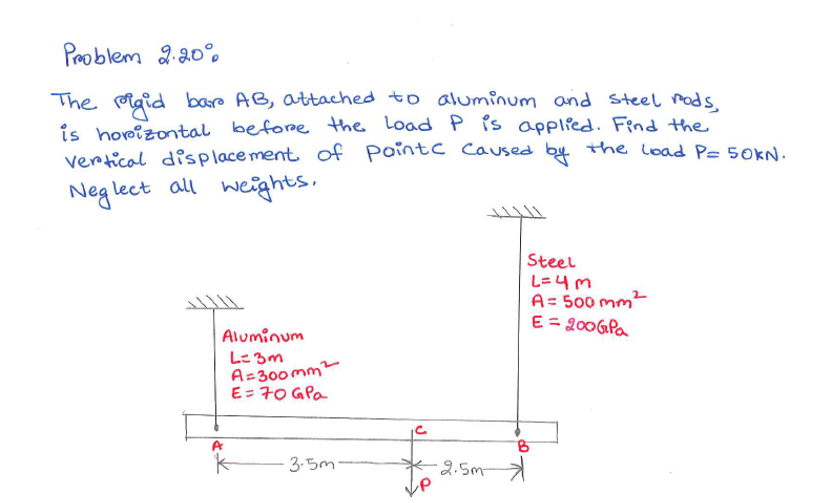 Problem 2.20°
The rigid bar AB, attached to aluminum and steel rods,
is horizontal before the load P is applied. Find the
vertical displacement of point C caused by the load P= 50KN.
Neglect all weights.
Steel
L=4m
A=500mm²
E=200GPa
Aluminum
L=3m
A=300mm²
E=70 GPa
C
A
B
3.5m
2.5m
P